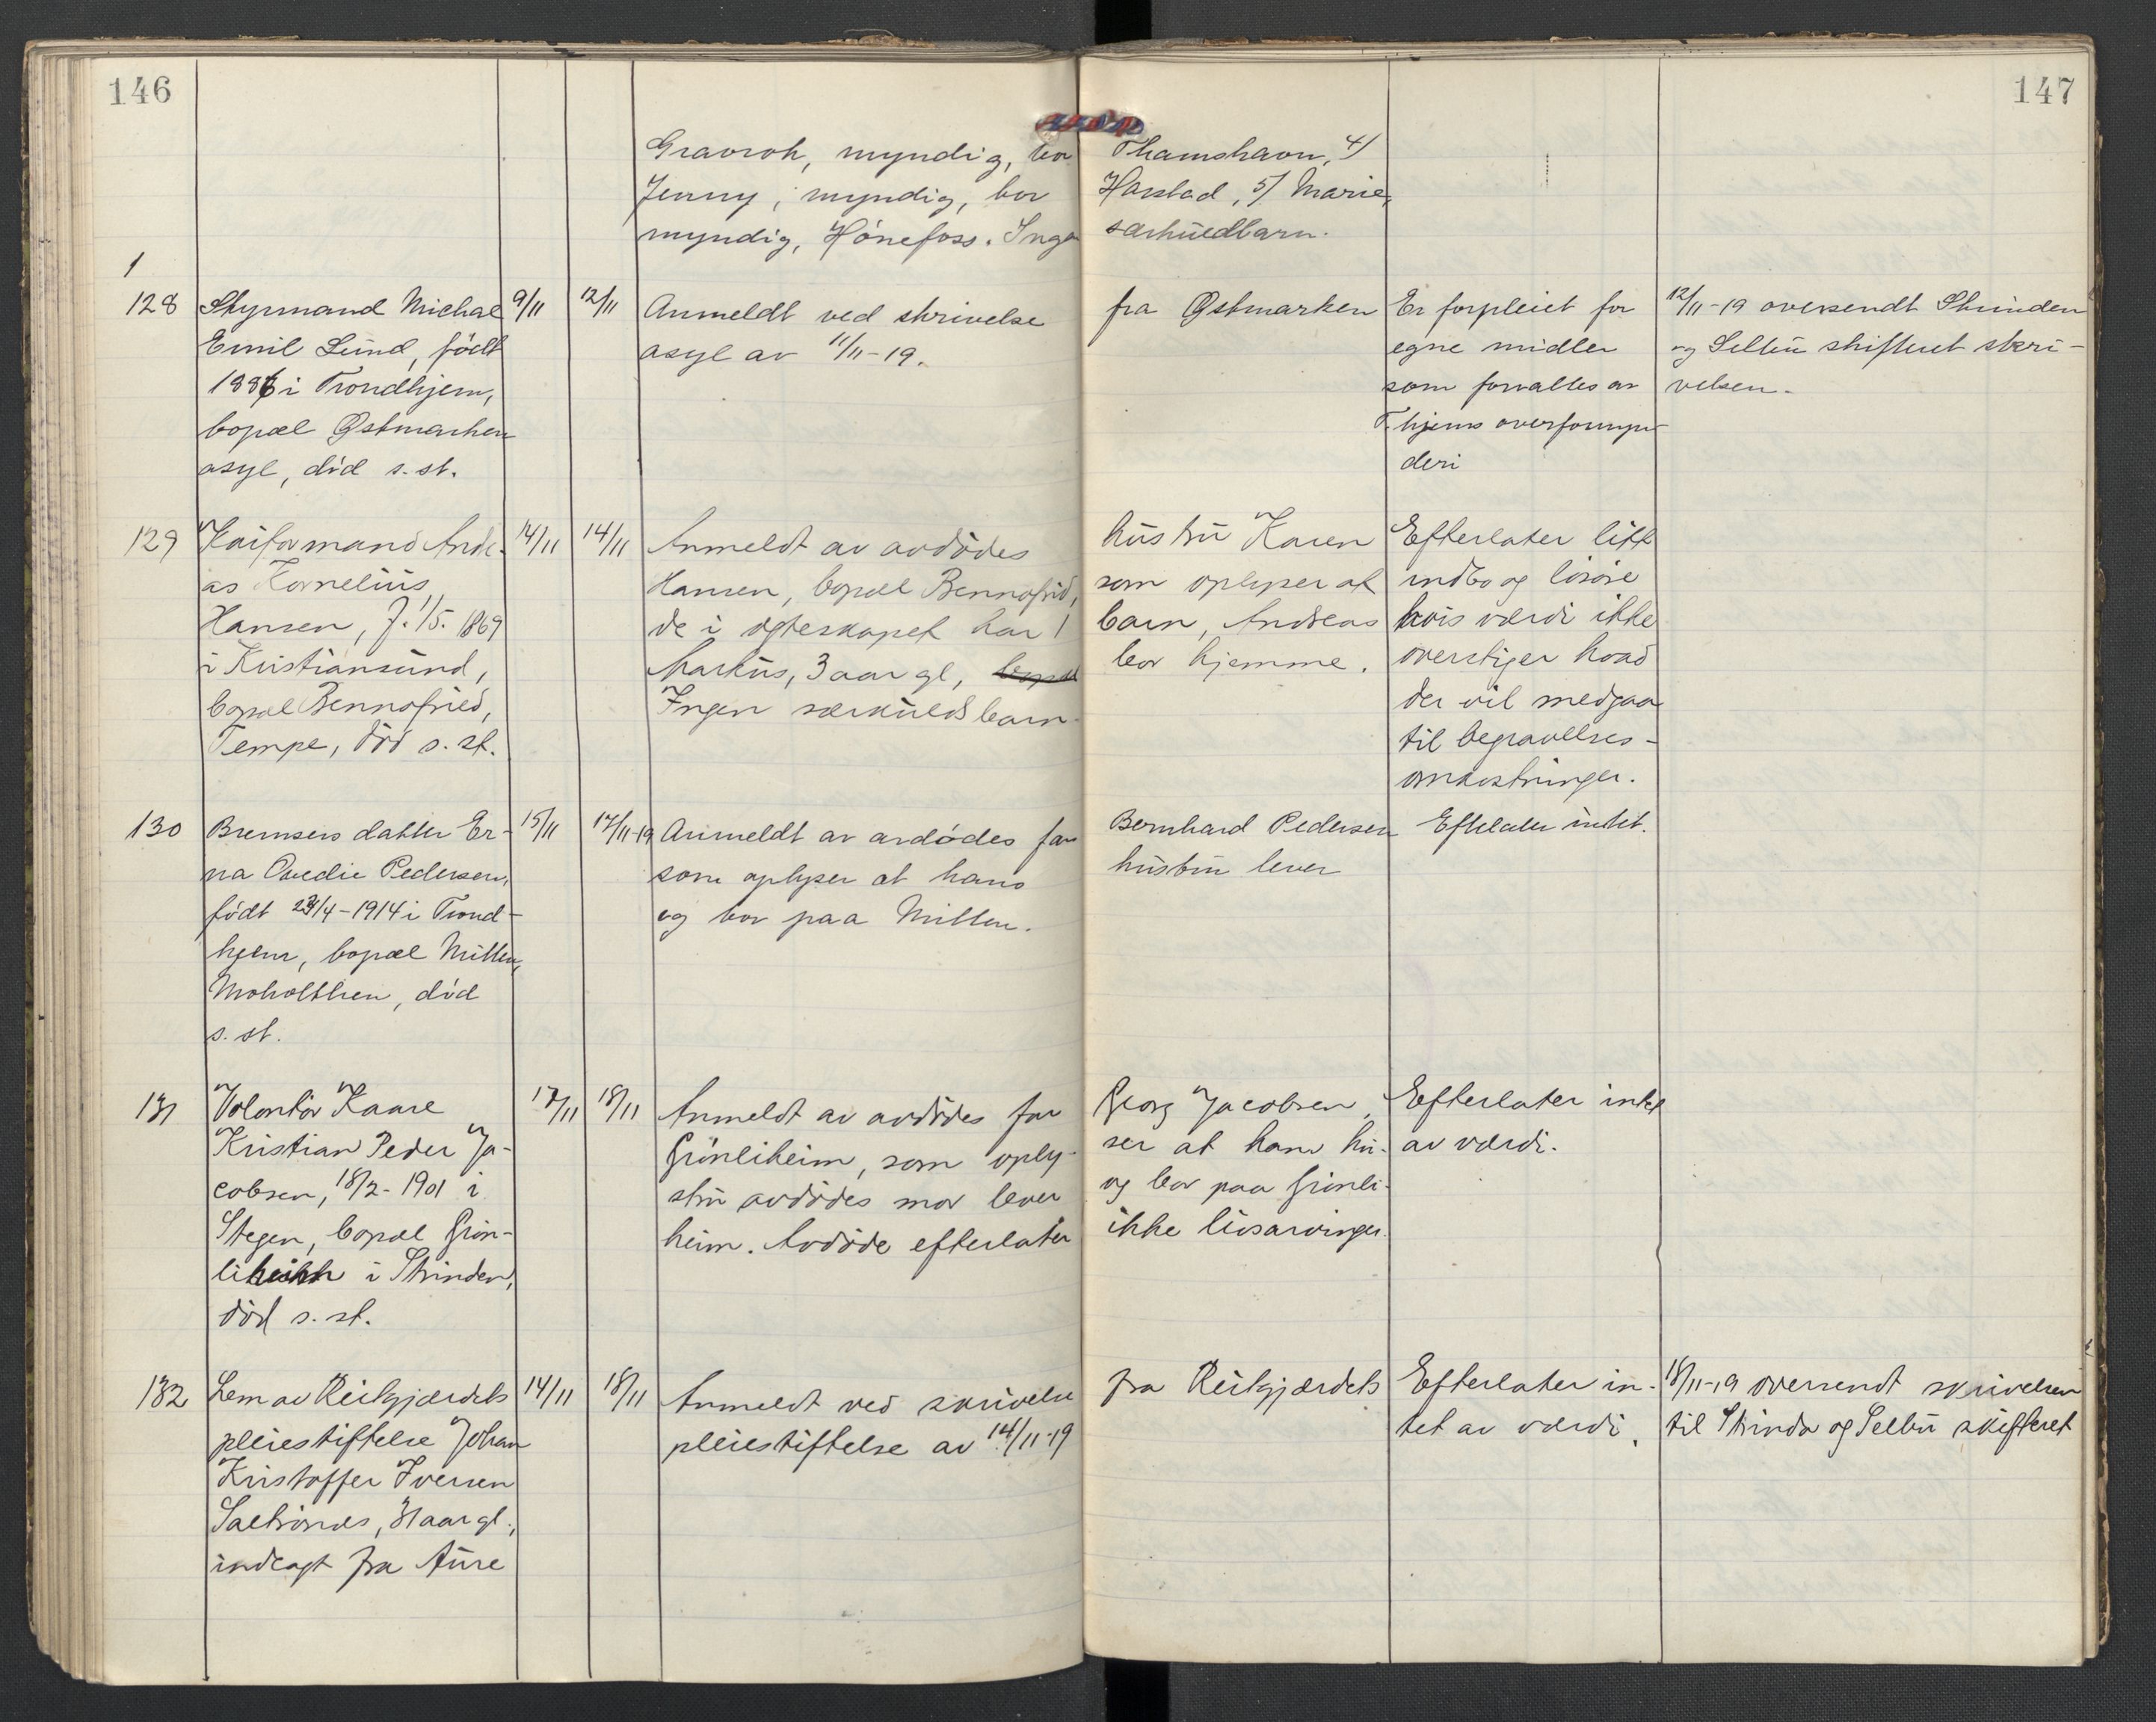 146
147
Gravrok, myndig, bor Thamshavn, 4/
Jenny, myndig, bor Harstad, 5/ Marie,
myndig, Hönefoss. Ingen særkuldbarn.
1
128
Styrmand Michael
Emil Lund, födt
1886 i Trondhjem,
bopæl Østmarken
asyl, död s. st.
9/11
12/11
Anmeldt ved skrivelse fra Østmarken
asyl av 11/11-19.
Er forpleiet for
egne midler
som forvaltes av
T.hjems overformyn-
deri
12/11-19 oversendt Strinden
og Selbu skifteret skri-
velsen.
129
Andre-
as Kornelius
Hansen, f. 1/5. 1869
i Kristiansund,
bopæl Bennafried,
Tempe, död s. st.
14/11
14/11
Anmeldt av avdödes hustru Karen
Hansen, bopæl Bennafrid, som oplyser at
de i ægteskapet har 1 barn, Andreas
Markus, 3 aar gl, bopæl bor hjemme.
Ingen særkuldsbarn.
Efterlater litt
indbo og lösöre
hvis værdi ikke
overstiger hvad
der vil medgaa
til begravelses-
omkostninger.
130
Bremsers datter Er-
na Ovedie Pedersen,
födt 23/4-1914 i Trond-
hjem, bopæl Millen,
Moholtlien, död
s. st.
15/11
17/11-19
Anmeldt av avdödes far Bernhard Pedersen
som oplyser at hans hustru lever
og bor paa Millen.
Efterlater intet.
131
Volontör Kaare
Kristian Peder Ja-
cobsen, 18/2-1901 i
Stegen, bopæl Grön-
liheim i Strinden,
död s. st.
17/11
18/11
Anmeldt av avdödes far Georg Jacobsen,
Grönliheim, som oply- ser at hans hu-
stru avdödes mor lever og bor paa Grönli-
heim. Avdöde efterlater ikke livsarvinger.
Efterlater intet
av værdi.
132
Lem av Reitgjærdets
pleiestiftelse Johan
Kristoffer Iversen
aar gl.,
indlagt fra Aure
14/11
18/11
Anmeldt ved skrivelse fra Reitgjærdets
pleiestiftelse av 14/11-19
Efterlater in-
tet av værdi.
18/11-19 oversendt skrivelsen
til Strinda og Selbu skifteret